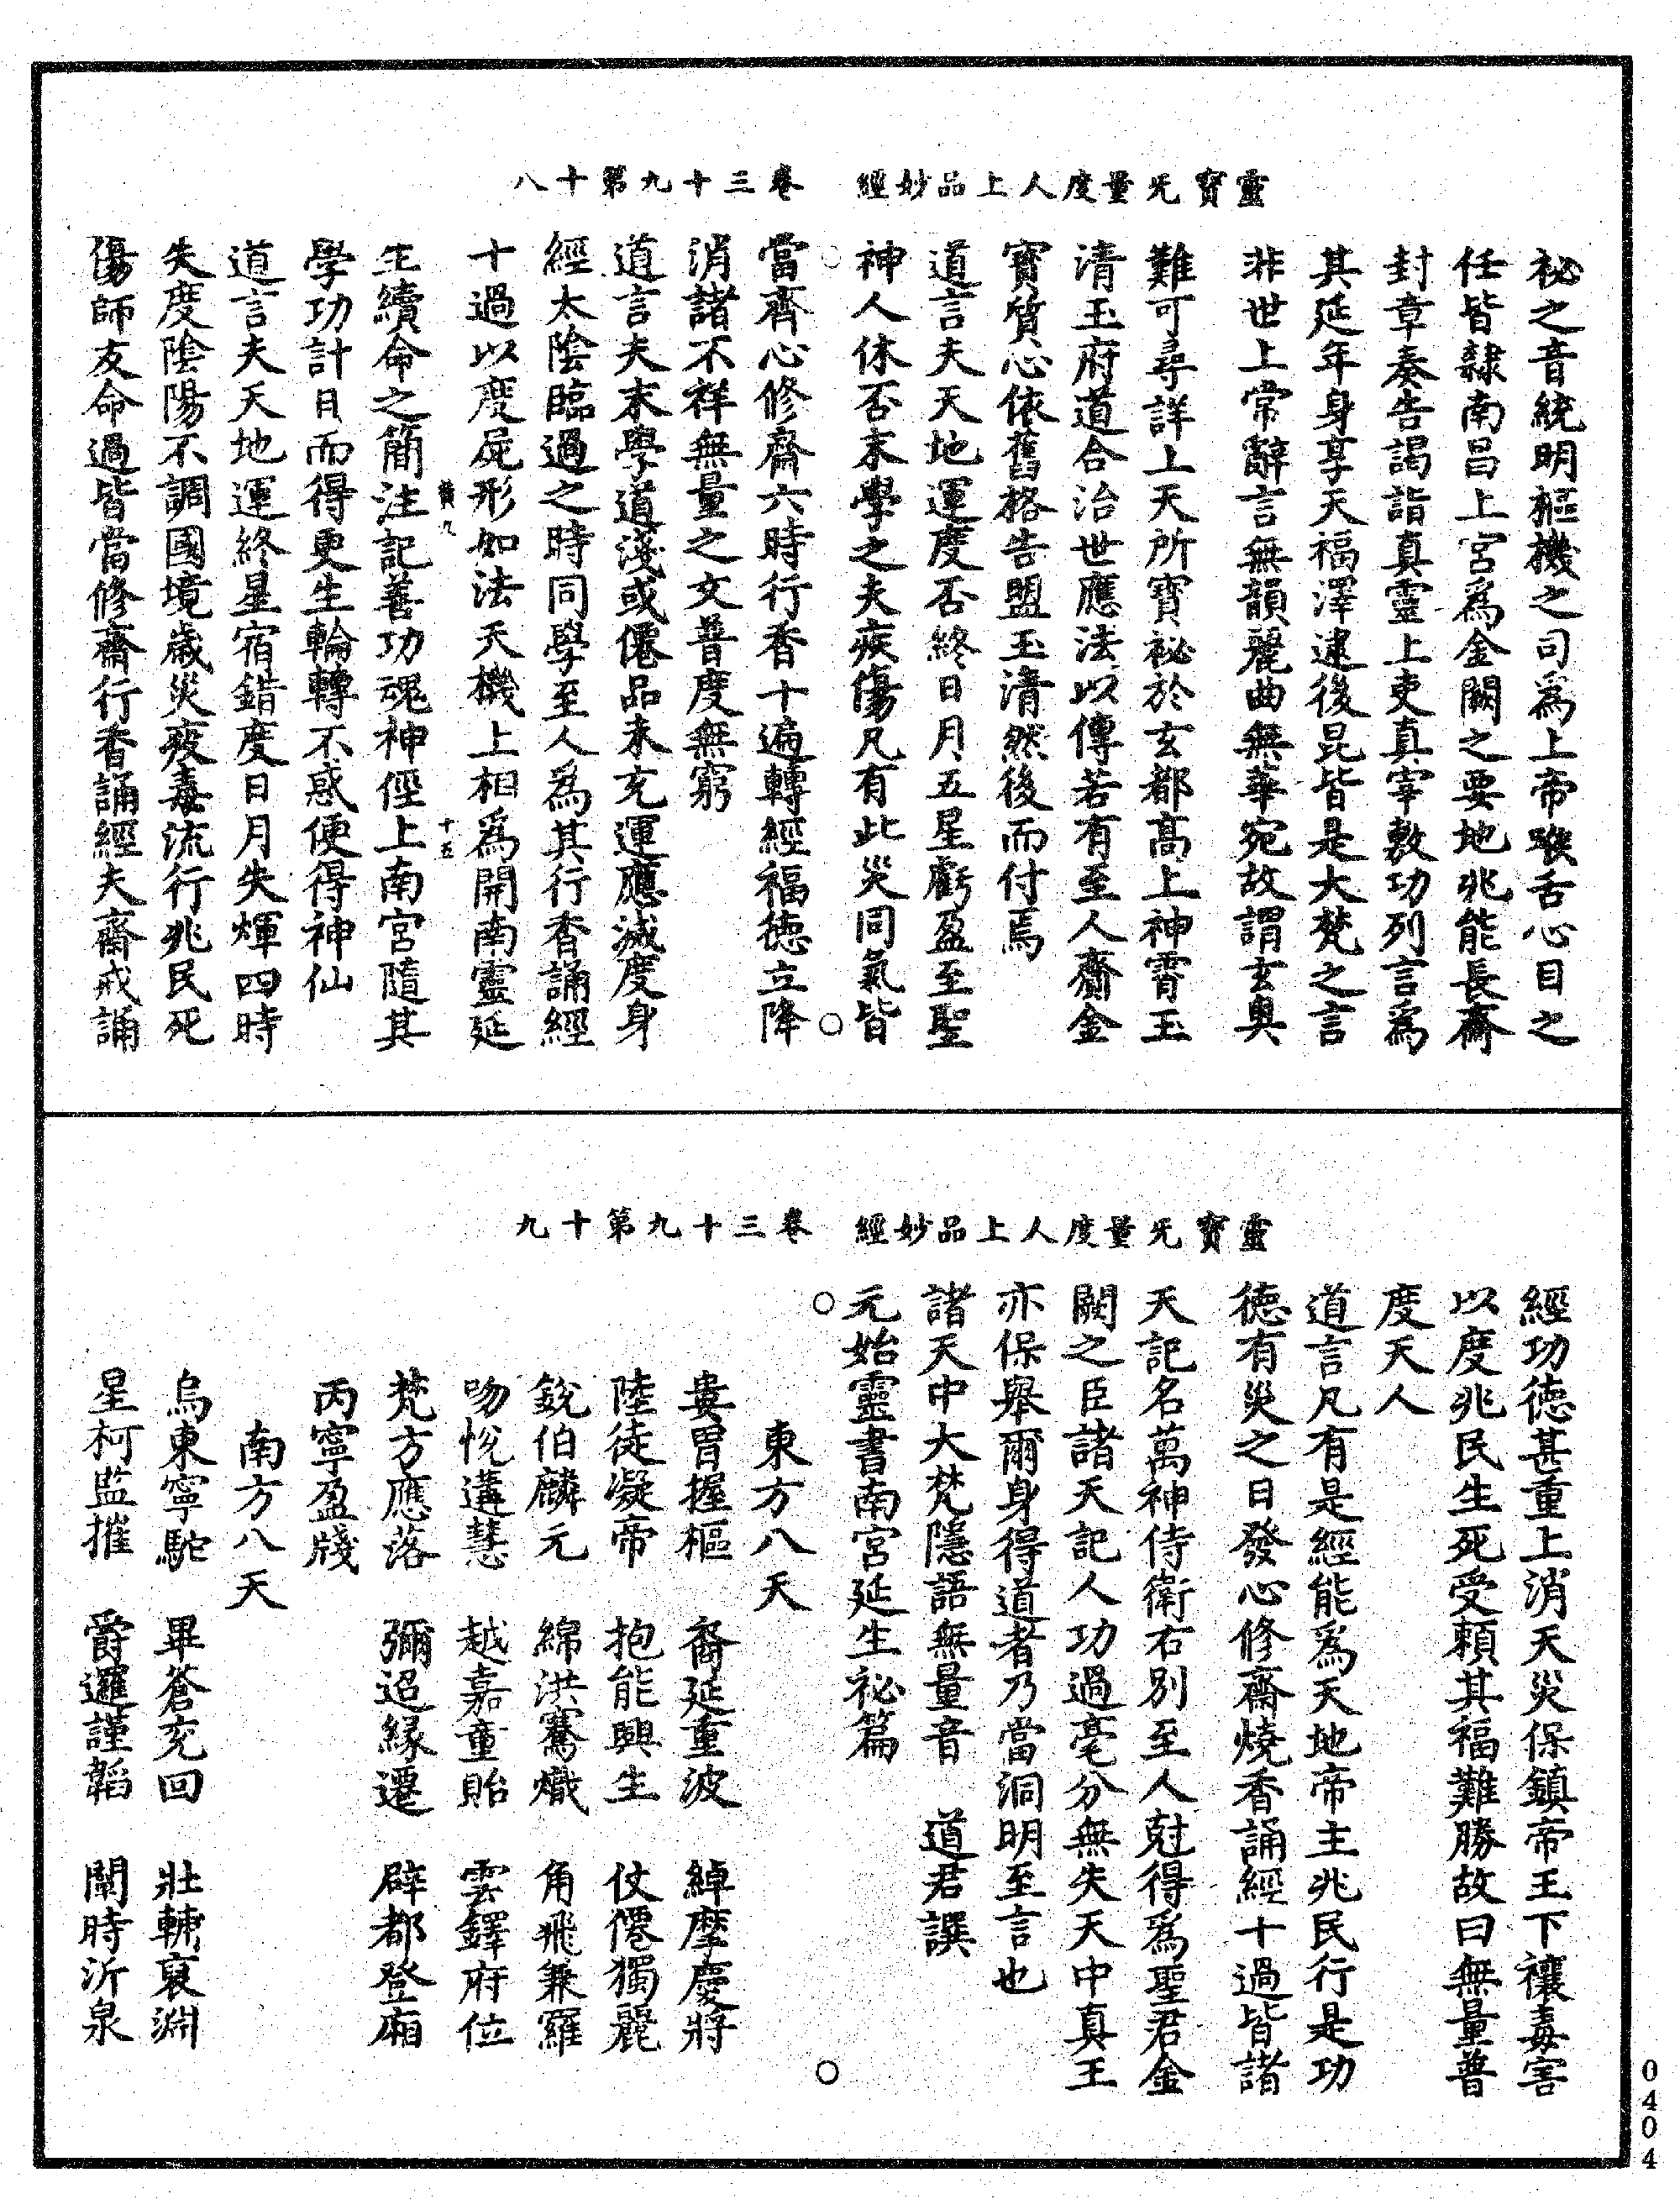 靈寶无量度人上品妙經　卷三十九第十八
祕之音統明樞機之司爲上帝喉舌心目之
任皆隸南昌上宮爲金闕之要地兆能長齋
封章奏告謁詣真靈上吏真宰敷功列言爲
其延年身享天福澤逮後昆皆是大梵之言
非世上常辭言無韻麗曲無華宛故謂玄奧
難可尋詳上天所寶祕於玄都高上神霄玉
清玉府道合治世應法以傳若有至人齋金
寶質心依舊格告盟玉清然後而付焉
道言夫天地運度否終日月五星虧盈至聖
神人休否末學之夫疾傷凡有此災同氣皆
當齊心修齋六時行香十遍轉經福德立降
消諸不祥無量之文普度無窮
道言夫末學道淺或僊品未充運應滅度身
經太陰臨過之時同學至人爲其行香誦經
十過以度屍形如法天機上相爲開南靈延
黃九　十五
生續命之簡注記善功魂神徑上南宮隨其
學功計日而得更生輪轉不惑便得神仙
道言夫天地運終星宿錯度日月失輝四時
失度陰陽不調國境歲災疫毒流行兆民死
傷師友命過皆當修齋行香誦經夫齋戒誦
靈寶无量度人上品妙經　卷三十九第十九
經功德甚重上消天災保鎮帝王下禳毒害
以度兆民生死受賴其福難勝故曰無量普
度天人
道言凡有是經能爲天地帝主兆民行是功
德有災之日發心修齋燒香誦經十過皆諸
天記名萬神侍衛右別至人尅得爲聖君金
闕之臣諸天記人功過毫分無失天中真王
亦保舉爾身得道者乃當洞明至言也
諸天中大梵隱語無量音　道君譔
元始靈書南宮延生祕篇
東方八天
婁胃握樞　裔延重波　綽摩慶將
陸徒凝帝　抱能興生　仗僊獨麗
銳伯麟元　綿洪騫熾　角飛兼羅
吻悅遘慧　越嘉童貽　雲鐸府位
梵方應落　彌迢緣遷　辟都登廂
丙寧盈牋
南方八天
烏東寧駝　畢蒼兖回　壯輔裒淵
星柯監摧　爵邏謹韜　闡時沂泉
0404